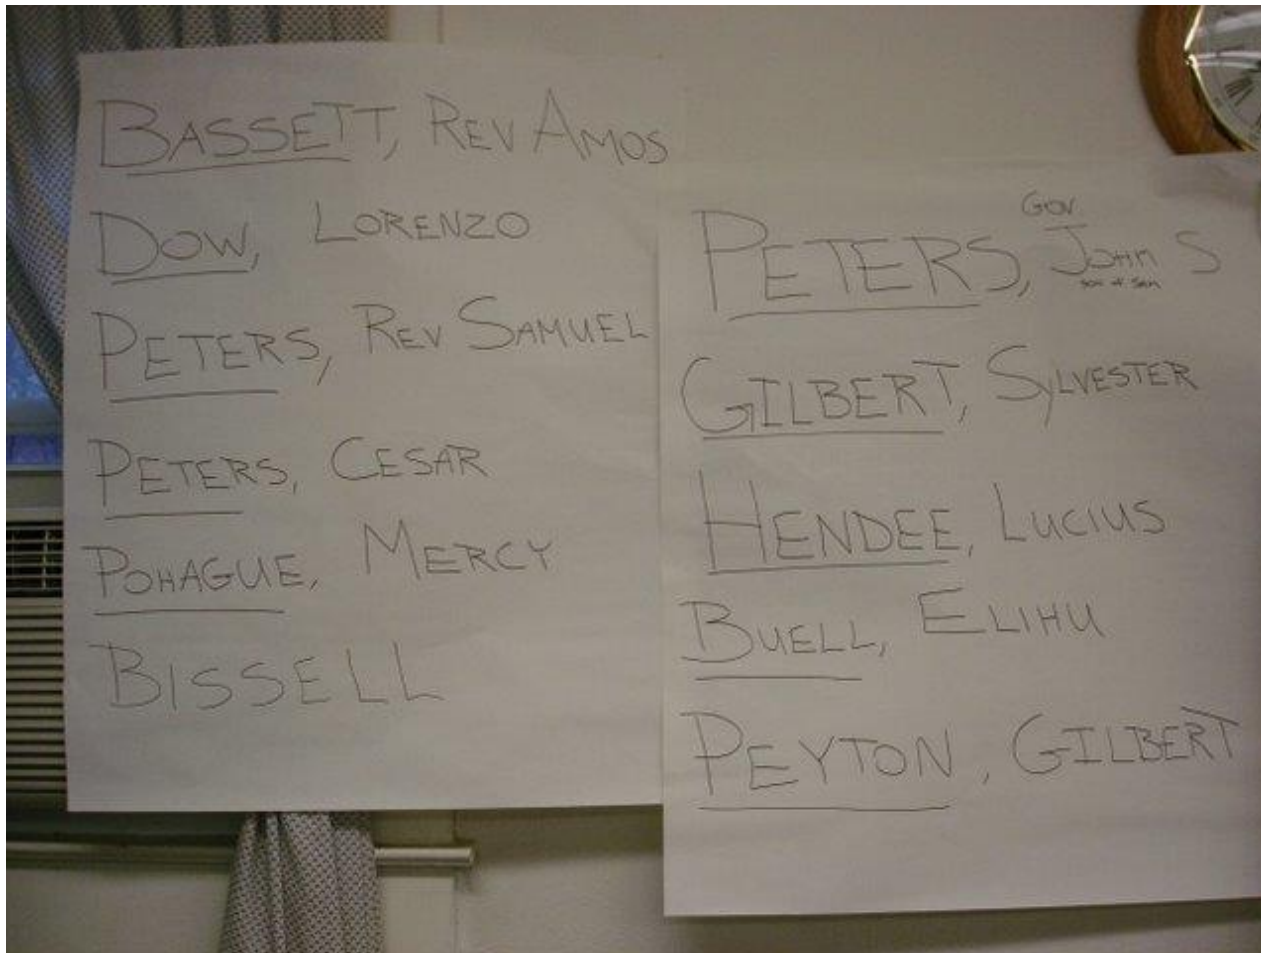 BASSETT, REV AMOS
DOW, LORENZO
PETERS, REV SAMUEL
PETERS, CESAR
POHAGUE, MERCY
BISSELL
GOV.
PETERS, JOHN S
son of Sam
GILBERT, SYLVESTER
HENDEE, LUCIUS
BUELL, ELIHU
PEYTON, GILBERT